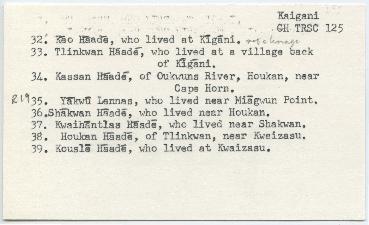 Kaigani
GH TRSC 125
32. Kāo Hāadē, who lived at Kīgāni.
33. Tlinkwan Hāadē, who lived at a village back
of Kīgāni.
34. Kassan Hāadē, of Oukwuns River, Houkan, near
Cape Horn.
R19 35. Yākwū Lannas, who lived near Miāgwun Point.
36. Shākwan Hāadē, who lived near Houkan.
37. Kwaihāntlas Hāadē, who lived near Shakwan.
38. Houkan Hāadē, of Tlinkwan, near Kweizasu.
39. Kouslē Hāadē, who lived at Kwaizasu.